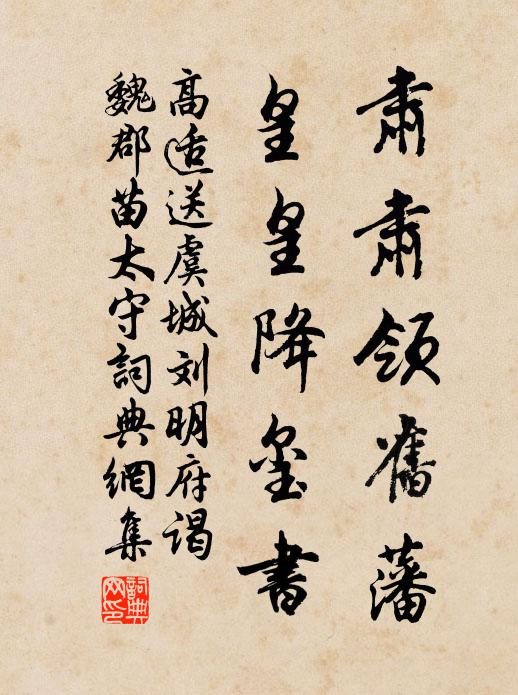 肅肅領舊藩
皇皇降璽書
高適送虞城刘明府谒
魏郡苗太守詞典網集
詞典网印